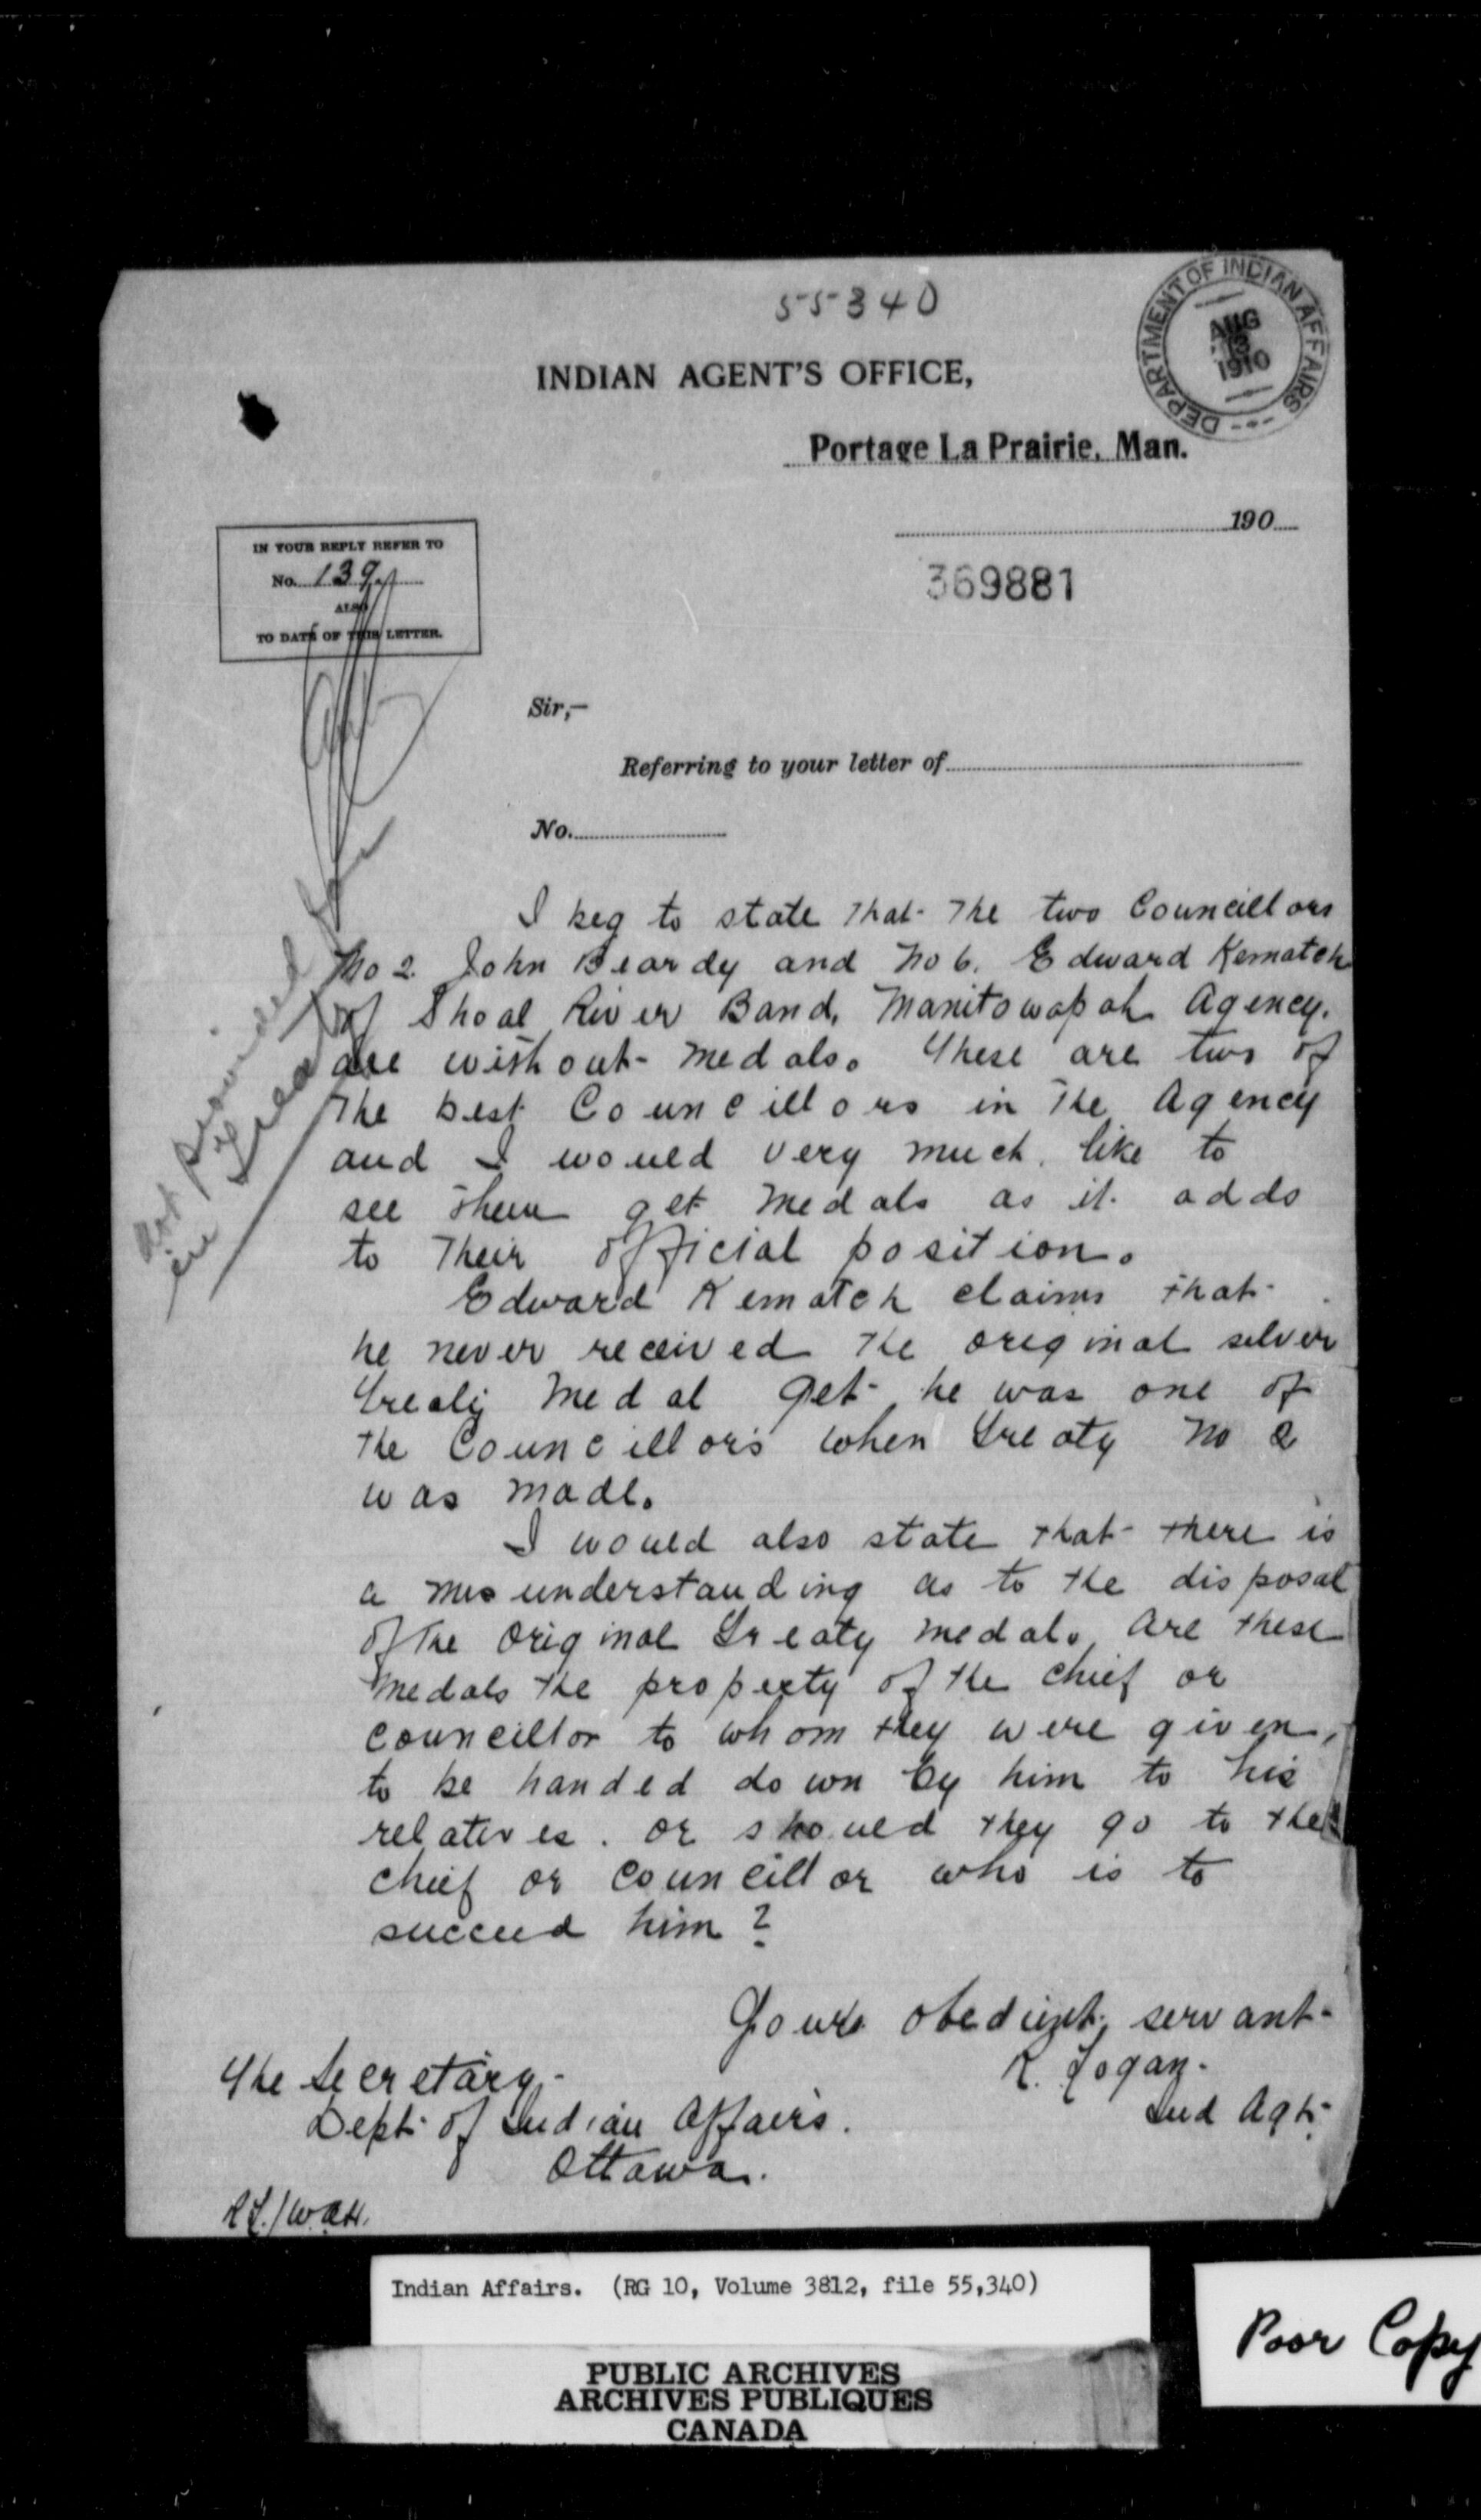 55340
DEPARTMENT OF INDIAN AFFAIRS
AUG
1910
INDIAN AGENT'S OFFICE,
Portage La Prairie, Man.
190
IN YOUR REPLY REFER TO
No. 139
ALSO
TO DATE OF THIS LETTER.
369881
Sir,-
Referring to your letter of
No.
I beg to state that the two Councillors
No 2 John Beardy and No 6. Edward Kematch
of Shoal River Band, Manitowapah Agency.
are without medals. These are two of
the best Councillors in the Agency
and I would very much like to
see them get medals as it adds
to their official position.
Edward Kematch claims that
he never received the original silver
Treaty medal yet he was one of
the Councillors when Treaty No 2
was made.
I would also state that there is
a misunderstanding as to the disposal
of the original Treaty medal. Are these
medals the property of the chief or
councillor to whom they were given,
to be handed down by him to his
relatives. or should they go to the
chief or councillor who is to
succeed him?
Not provided for
in Treaty
Yours obedient servant
R. Logan.
Ind Agt.
The Secretary
Dept. of Indian Affairs.
Ottawa.
RL/WAH.
Indian Affairs. (RG 10, Volume 3812, file 55,340)
Poor Copy
PUBLIC ARCHIVES
ARCHIVES PUBLIQUES
CANADA